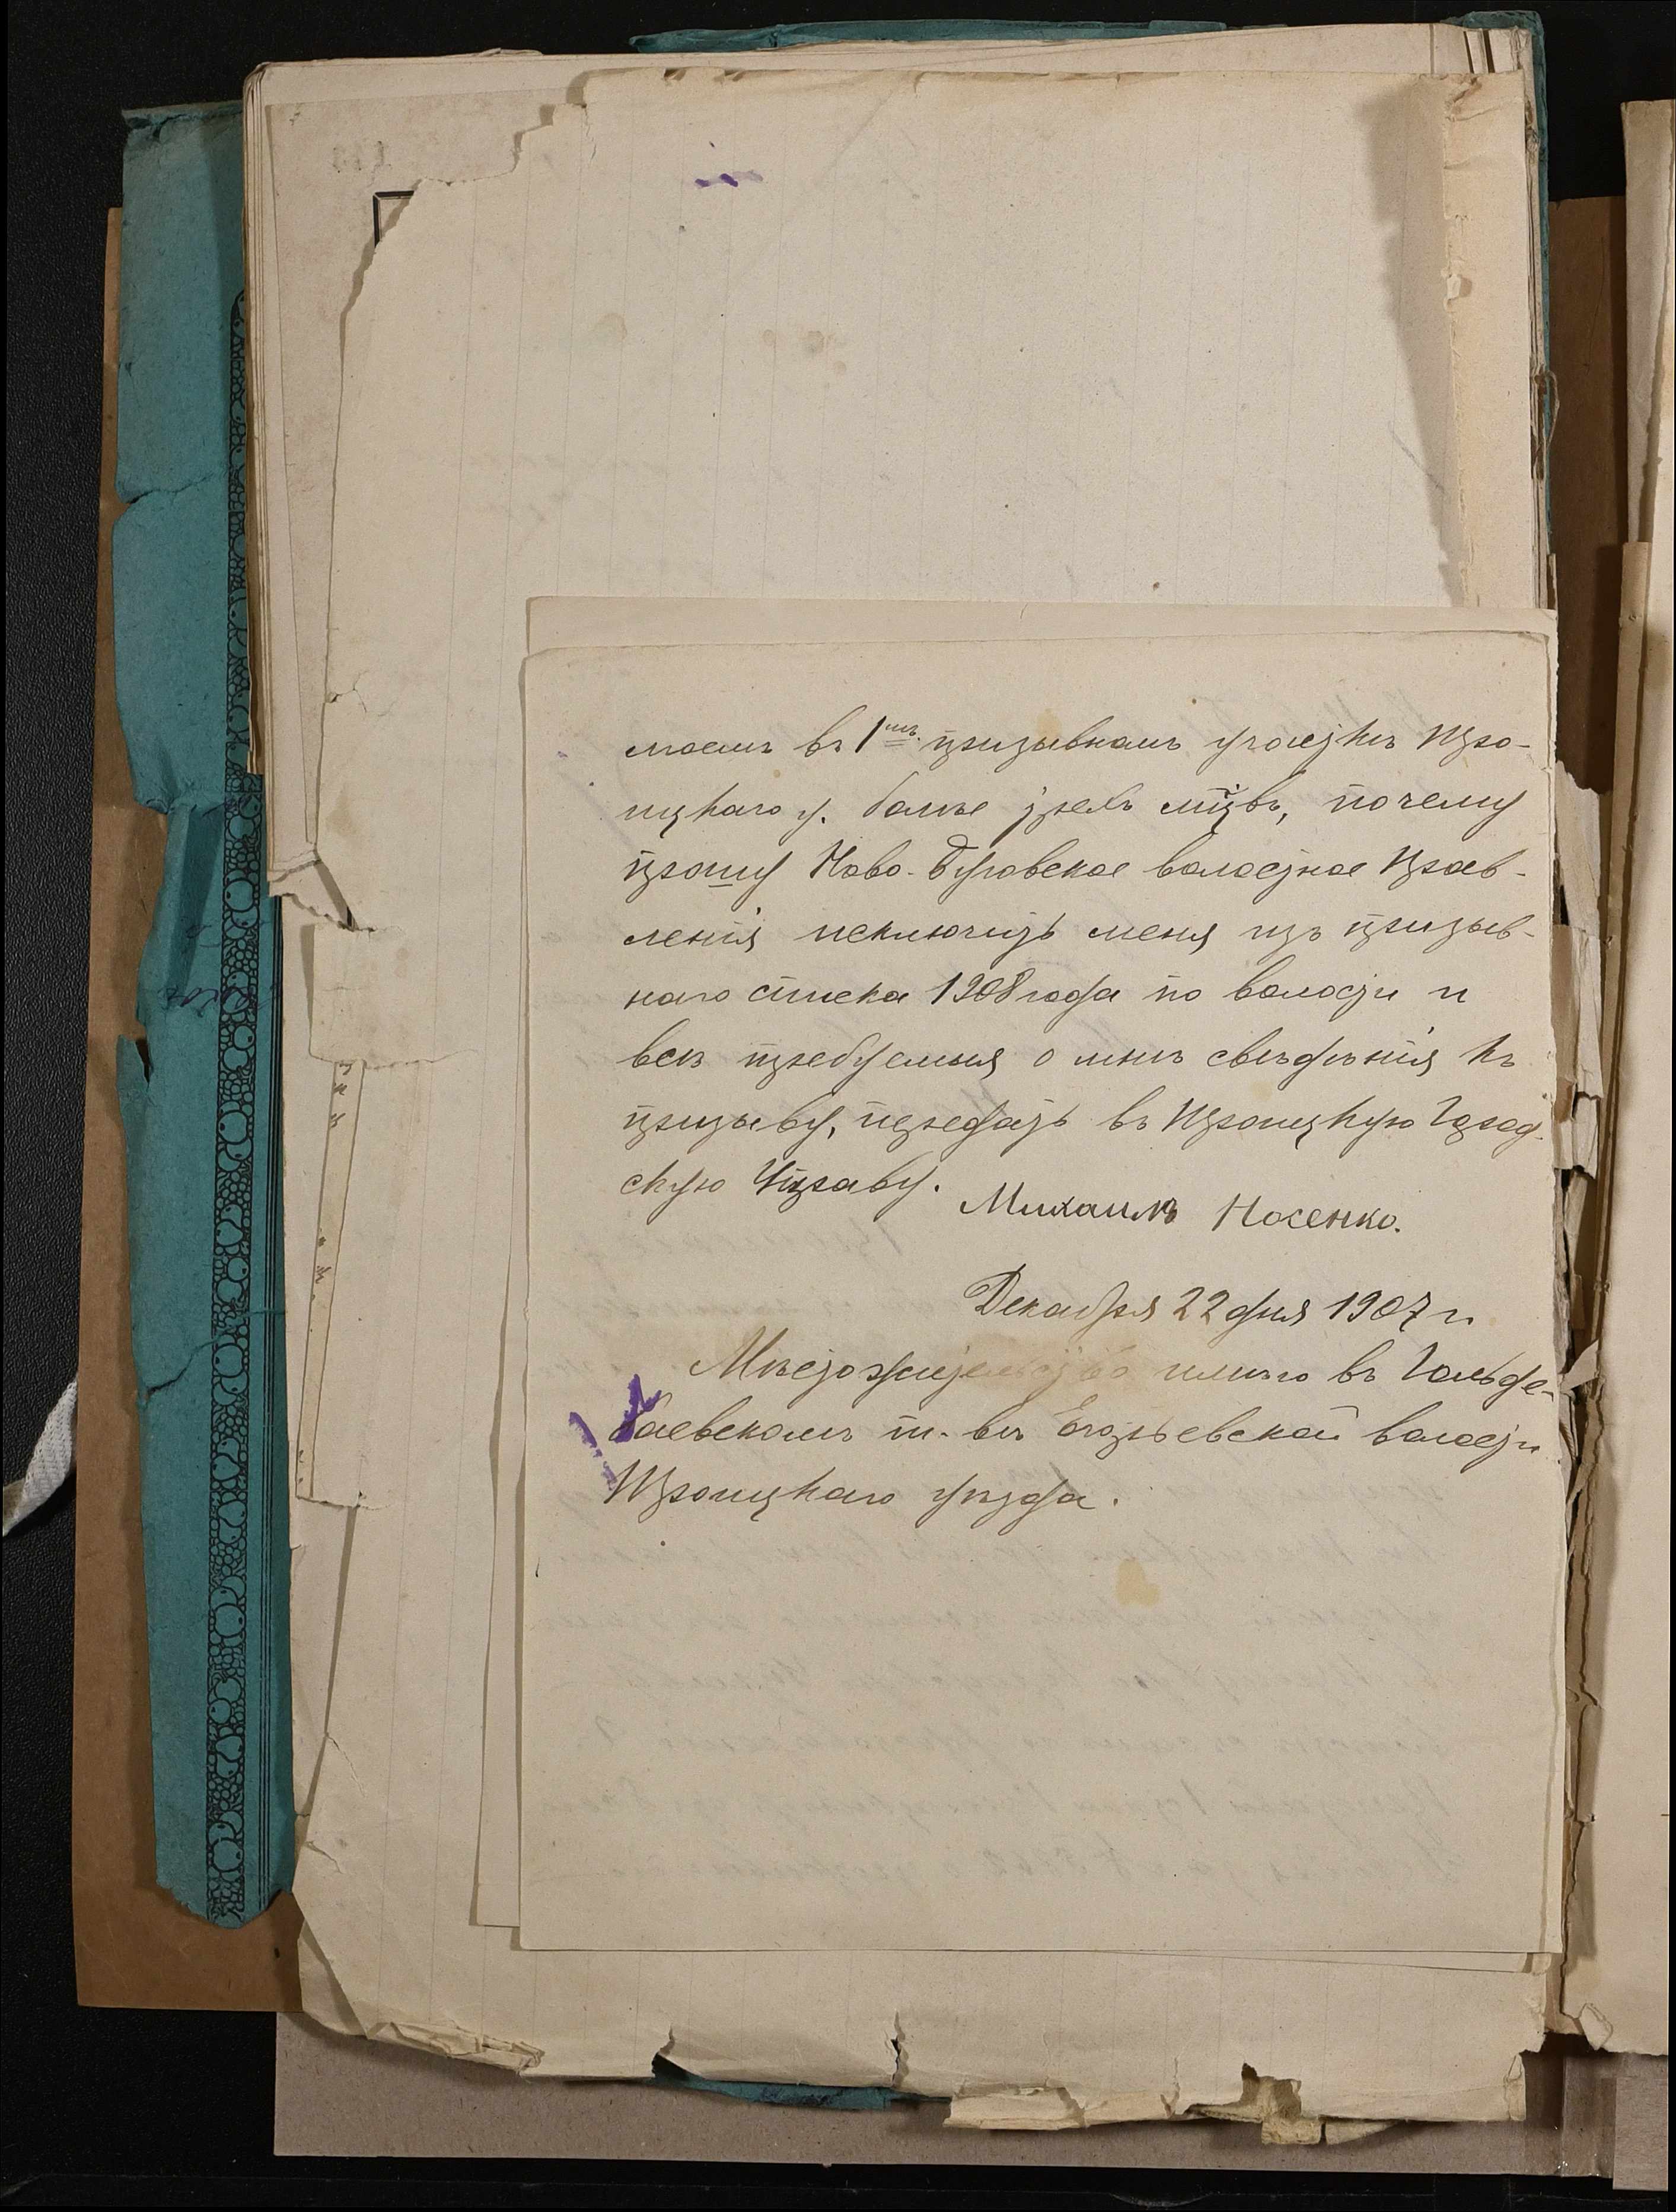 моемъ въ 1мъ. призывномъ участкѣ Тро-
ицкаго у. болѣе трехъ лѣтъ, почему
прошу Ново-Буровское волостное Прав-
ленія исключить меня изъ призыв-
наго списка 1908 года по волости и
всѣ требуемыя о мнѣ свѣдѣнія къ
призыву, передать въ Троицкую Город-
скую Управу.
Михаилъ Носенко.
Декабря 22 дня 1907 г.
Мѣстожительство имѣю въ
баевскомъ п. въ волости
Троицкаго уѣзда.